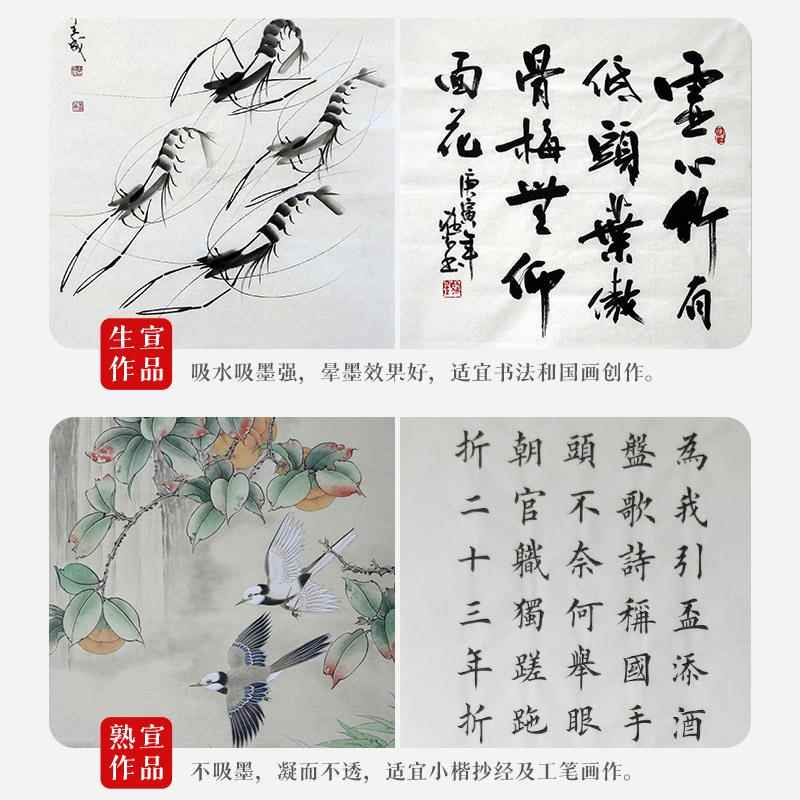 虛心竹有
低頭葉傲
骨梅無仰
面花
庚寅年
生宣
作品
吸水吸墨强，晕墨效果好，适宜书法和国画创作。
為我引盃添酒
盤歌詩稱國手
頭不奈何舉眼
朝官職獨蹉跎
折二十三年折
熟宣
作品
不吸墨，凝而不透，适宜小楷抄经及工笔画作。